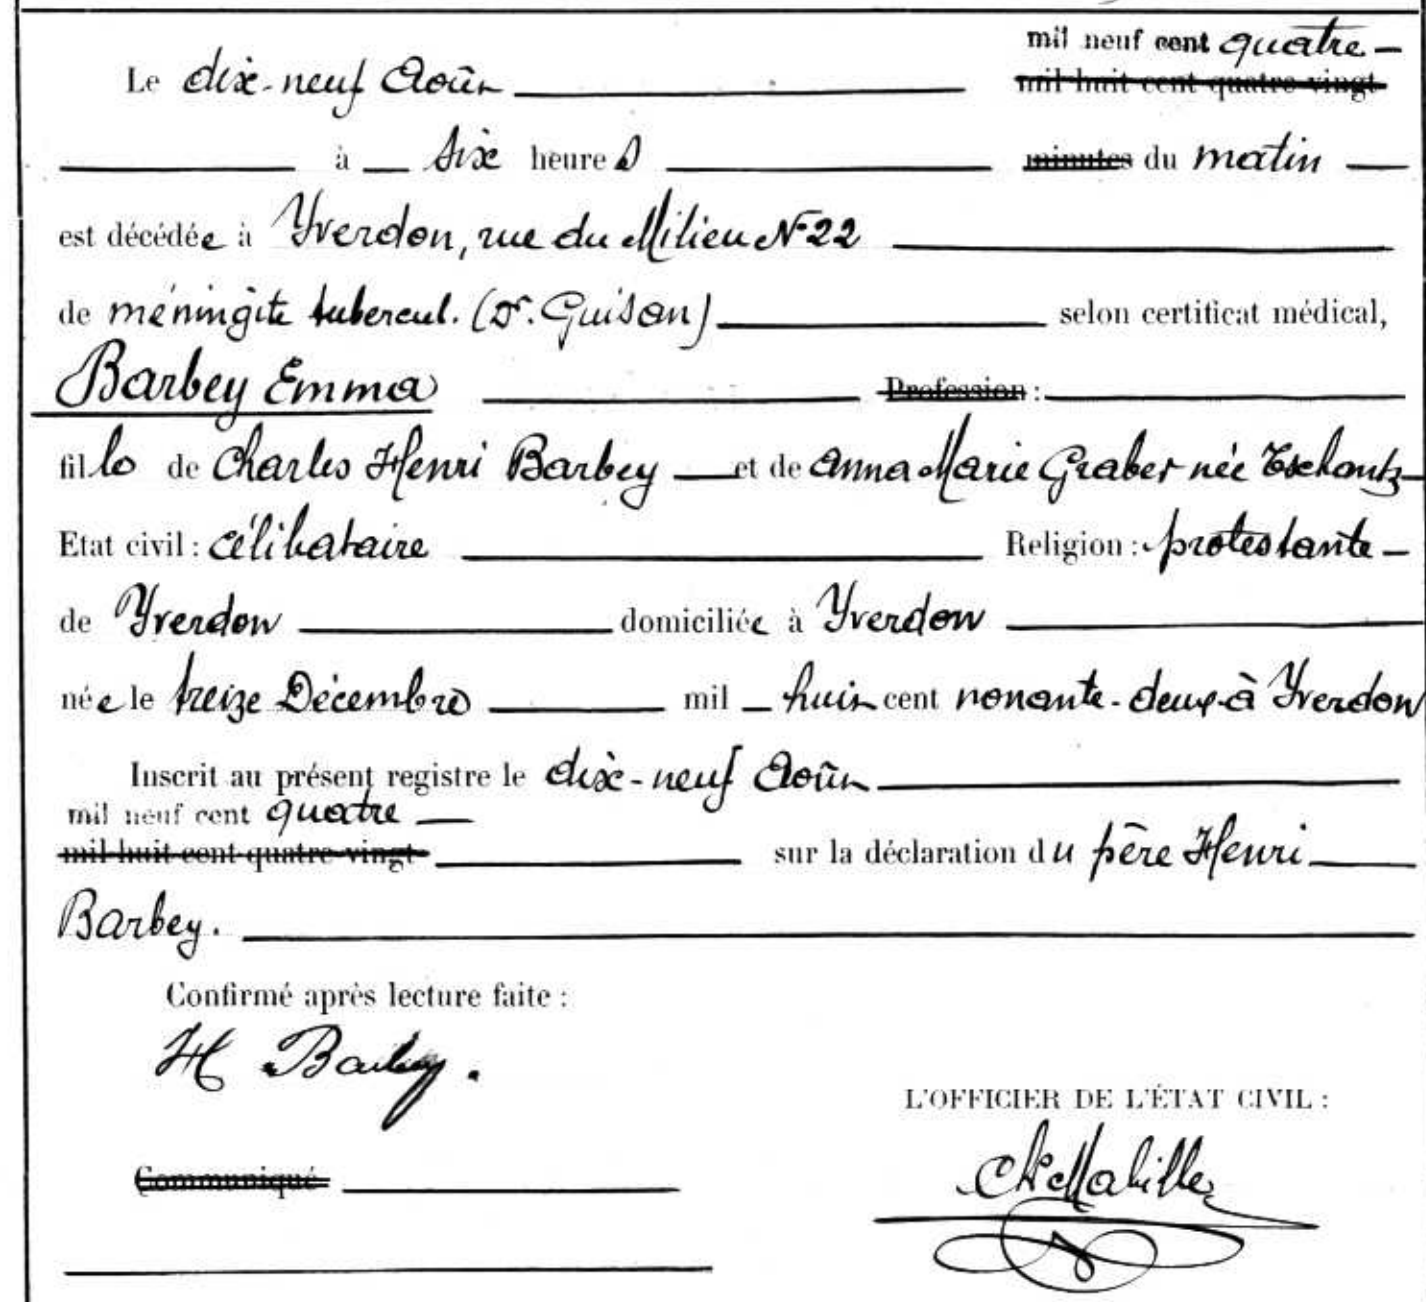 mil neuf cent quatre —
Le dix-neuf Août mil huit cent quatre-vingt
à six heures minutes du matin
est décédée à Yverdon, rue du Milieu N° 22
de méningite tubercul. (Dr. Guisan) selon certificat médical,
Barbey Emma Profession :
fille de Charles Henri Barbey et de Anna Marie Graber née Tschantz
Etat civil : célibataire Religion : protestante
de Yverdon domiciliée à Yverdon
née le treize Décembre mil huit cent nonante-deux à Yverdon
Inscrit au présent registre le dix-neuf Août
mil neuf cent quatre
mil huit cent quatre-vingt sur la déclaration du père Henri
Barbey.
Confirmé après lecture faite :
H Barbey.
L'OFFICIER DE L'ÉTAT CIVIL :
Communiqué
Ch Mabille